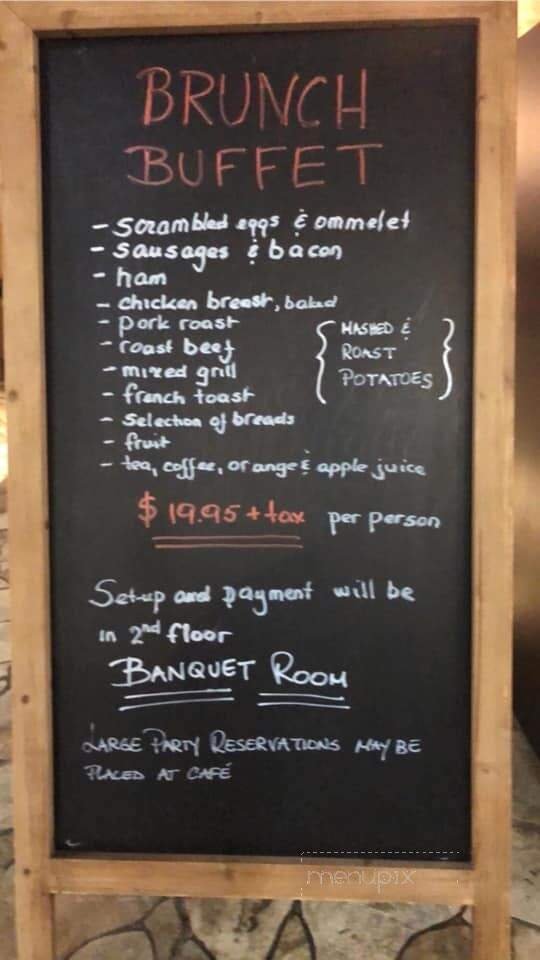 BRUNCH
BUFFET
- scrambled eggs & ommelet
- sausages & bacon
- ham
- chicken breast, baked
- pork roast
- roast beef
- mixed grill
- french toast
{ MASHED &
ROAST
POTATOES }
- Selection of breads
- fruit
- tea, coffee, orange & apple juice
$19.95 + tax per person
Set-up and payment will be
in 2nd floor
BANQUET ROOM
LARGE PARTY RESERVATIONS MAY BE
PLACED AT CAFÉ
menupix